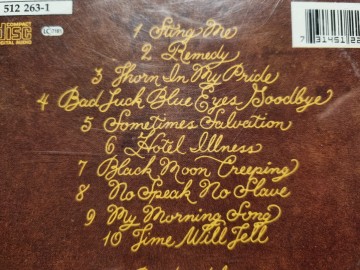 512 263-1
COMPACT
disc
DIGITAL AUDIO
7 31451 22
1 Sting Me
2 Remedy
3 Thorn In My Pride
4 Bad Luck Blue Eyes Goodbye
5 Sometimes Salvation
6 Hotel Illness
7 Black Moon Creeping
8 No Speak No Slave
9 My Morning Song
10 Time Will Tell